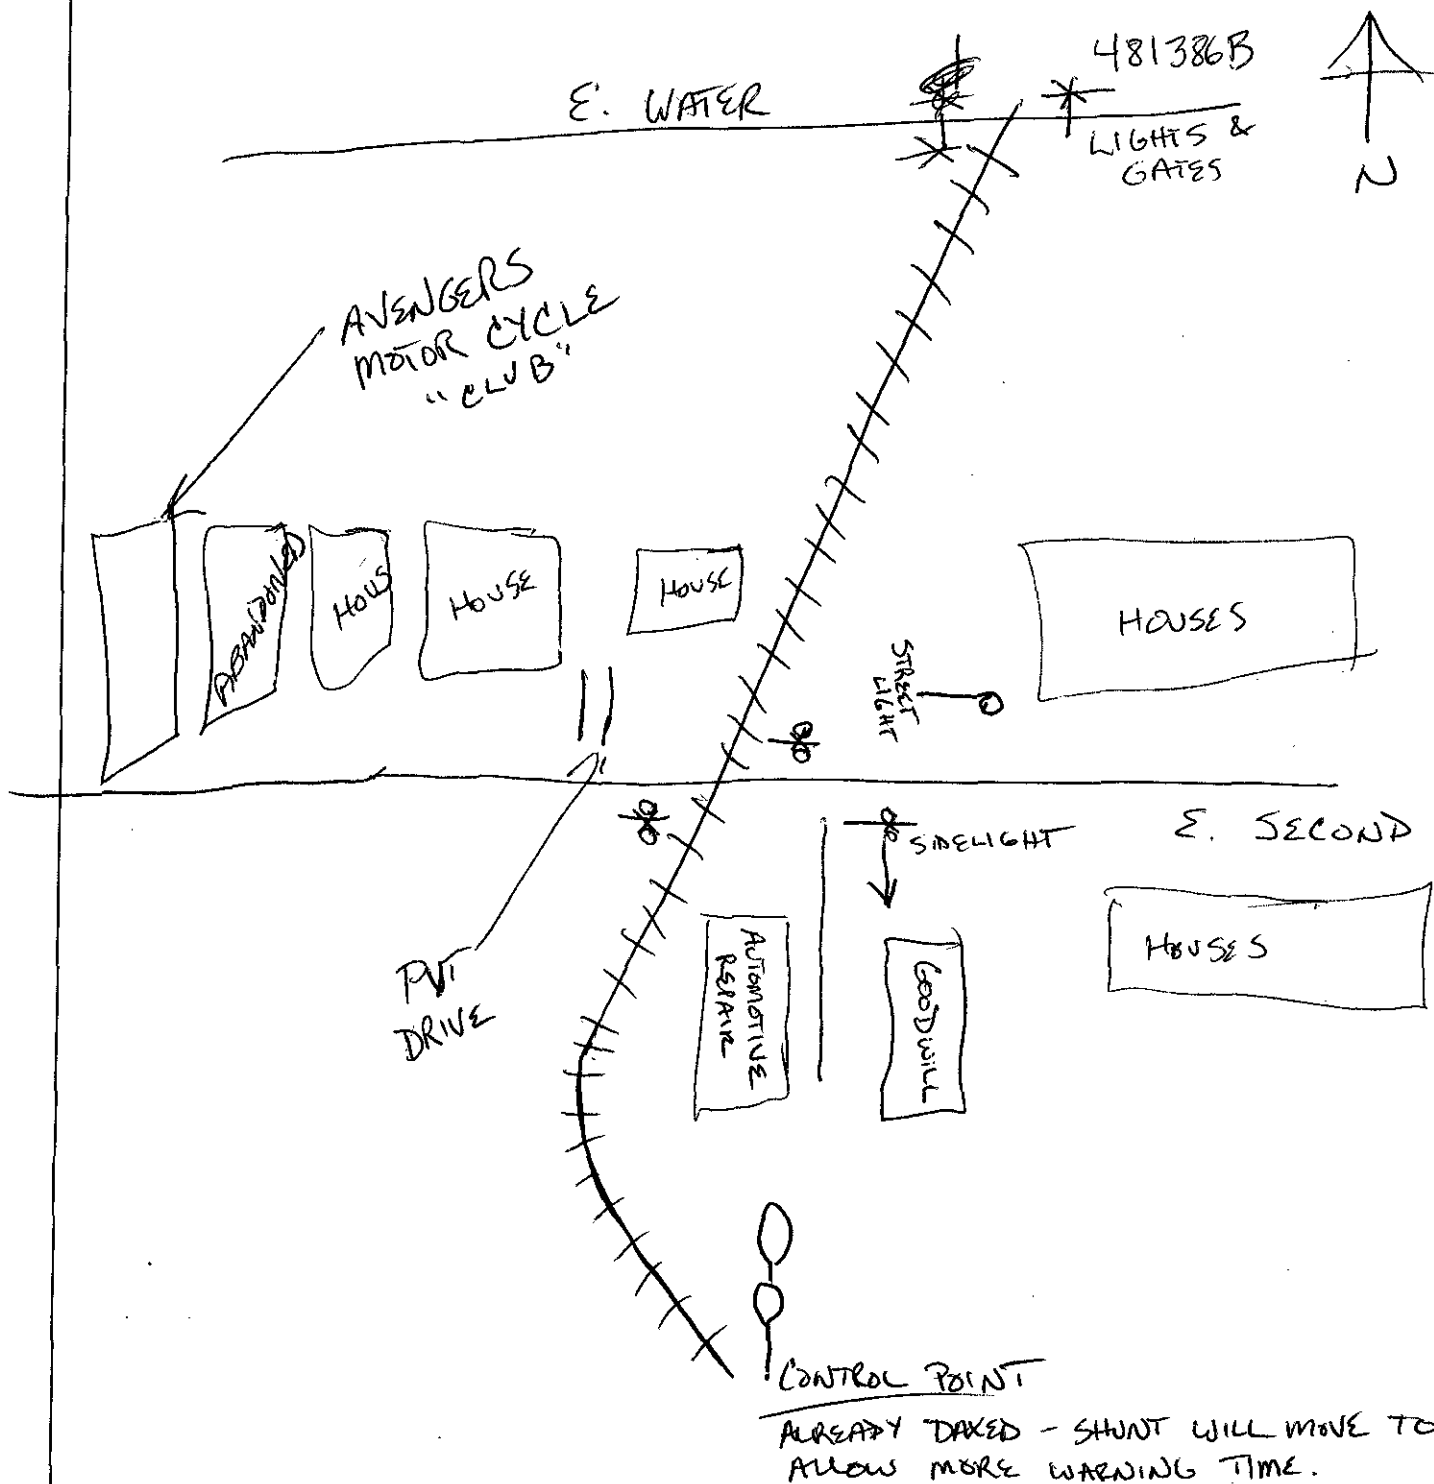 481386B
E. WATER
LIGHTS &
GATES
N
AVENGERS
MOTOR CYCLE
"CLUB"
ABANDONED
HOUS
HOUSE
HOUSE
HOUSES
STREET
LIGHT
SIDELIGHT
E. SECOND
PVT
DRIVE
AUTOMOTIVE
REPAIR
GOODWILL
HOUSES
CONTROL POINT
ALREADY DAXED - SHUNT WILL MOVE TO
ALLOW MORE WARNING TIME.